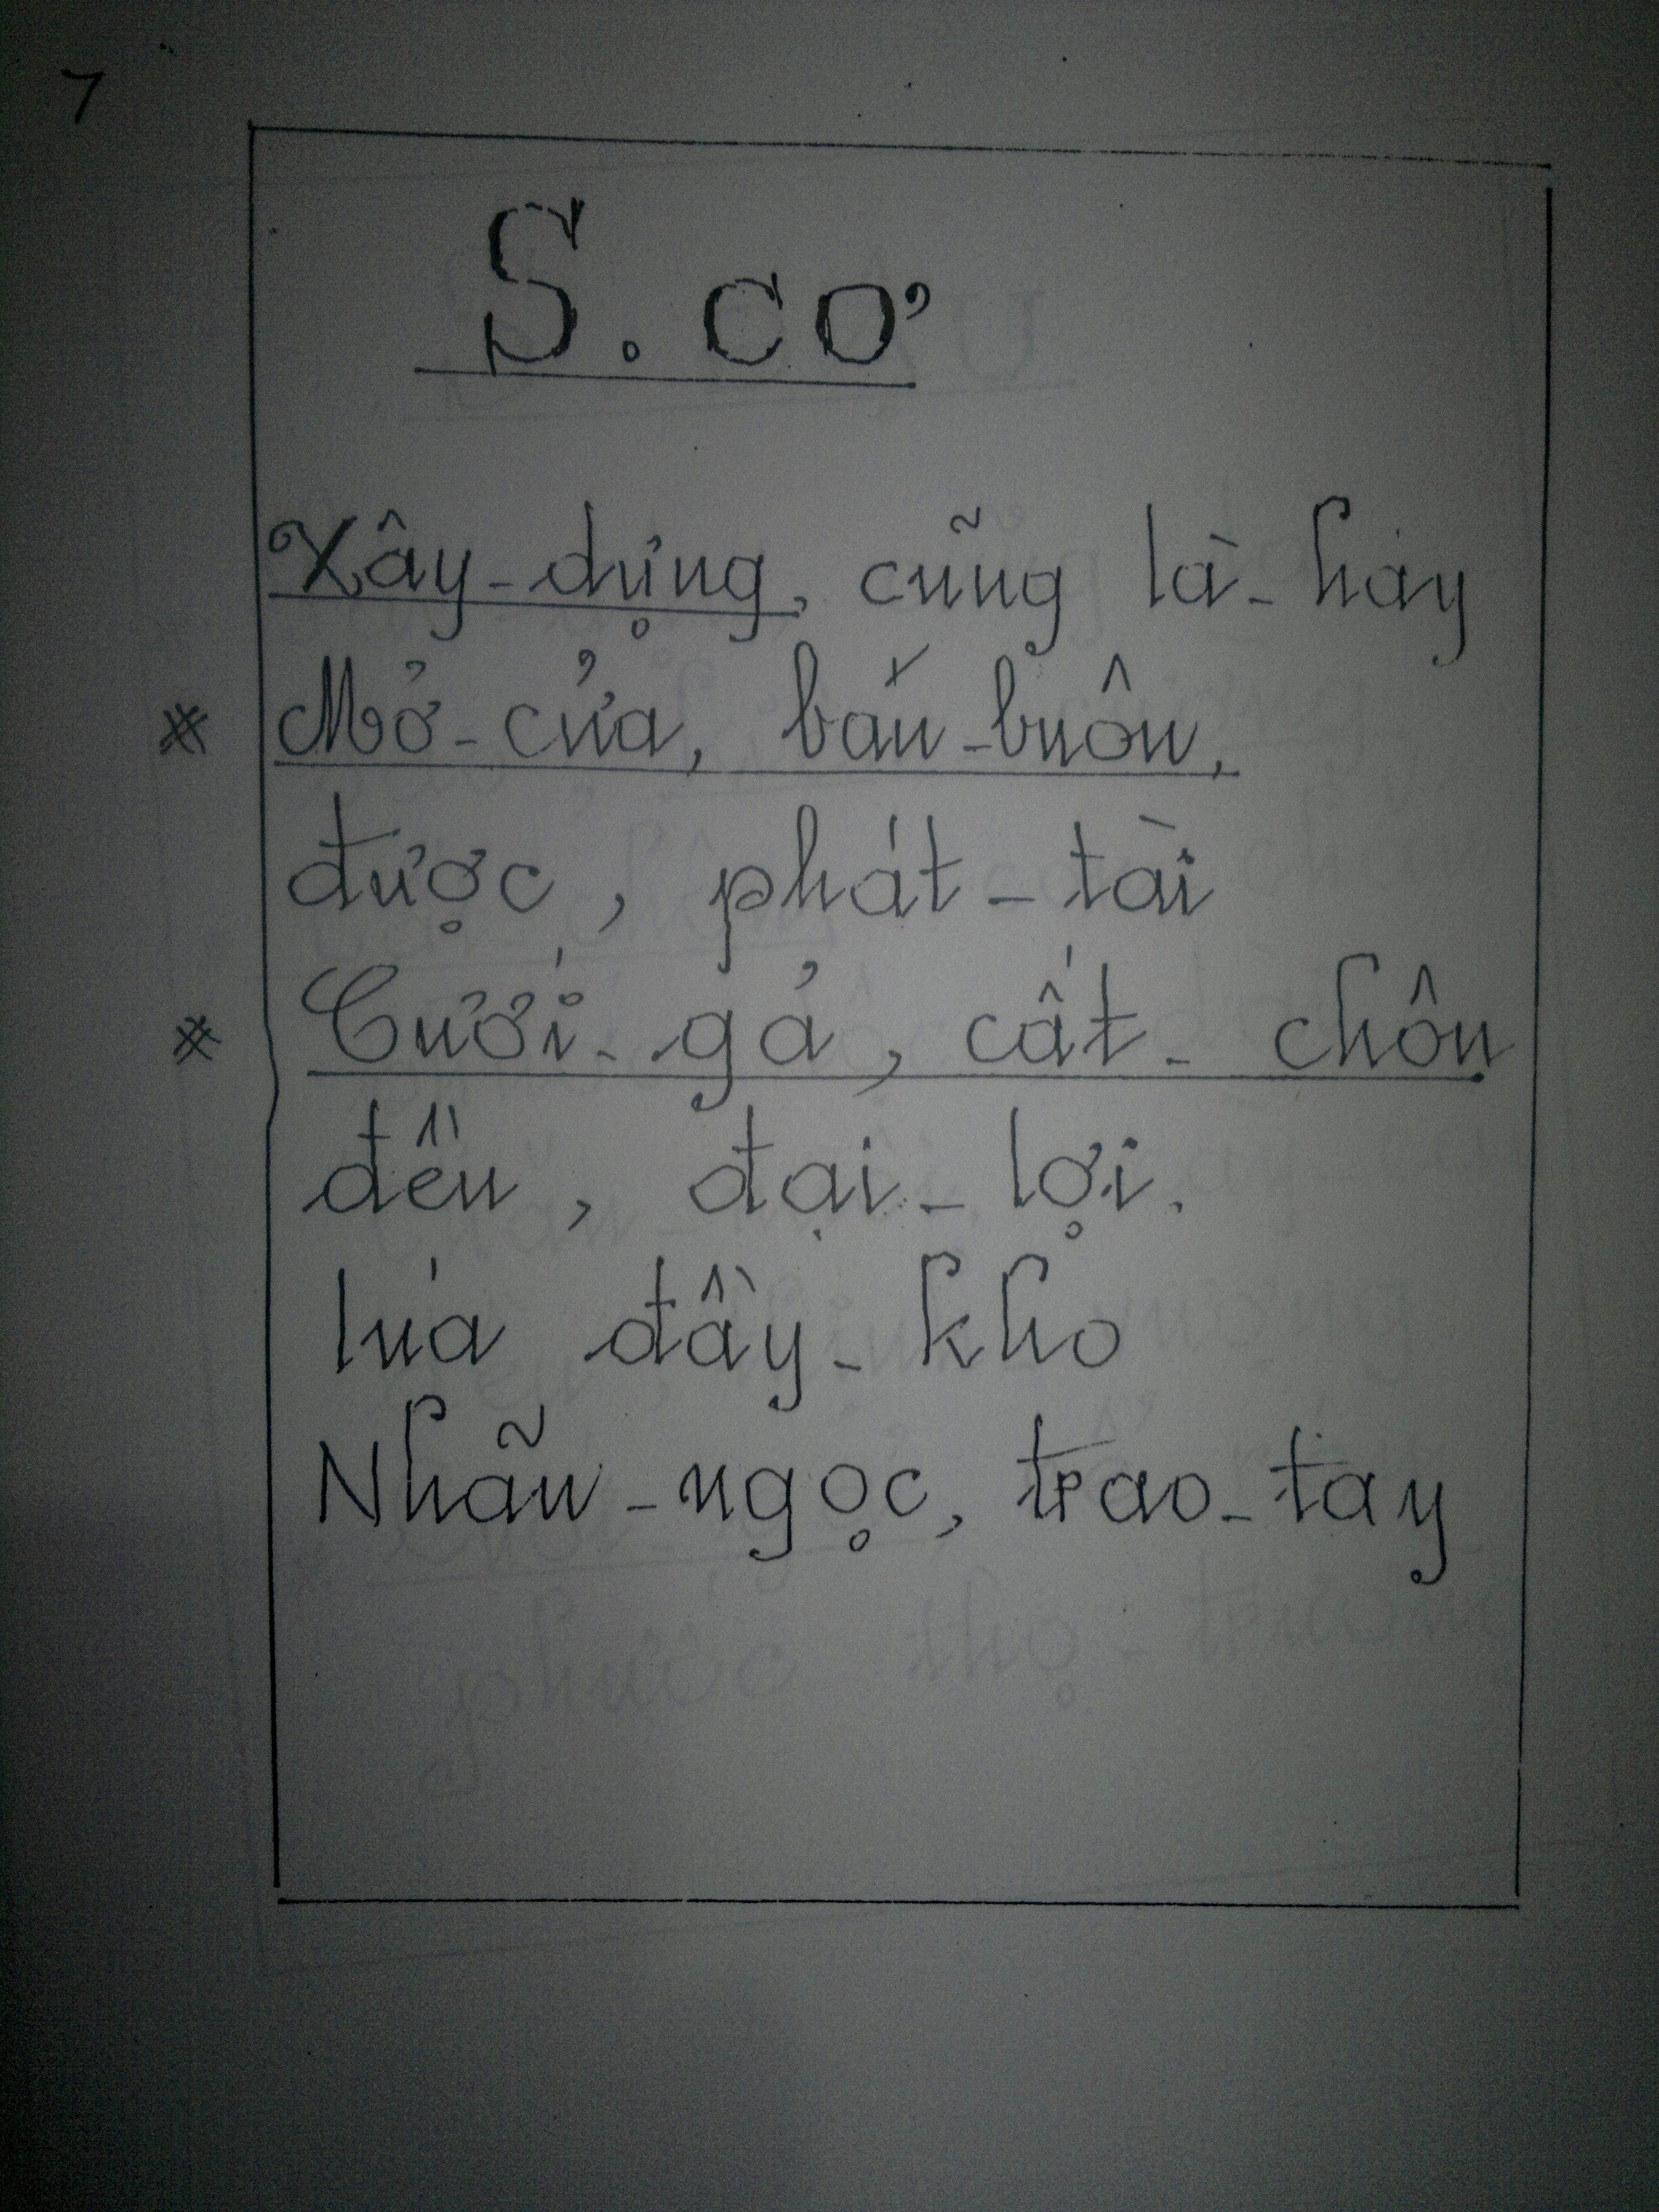 7
S. cơ
Xây-dựng, cũng là-hay
* Mở-cửa, bán-buôn,
được, phát-tài
* Cưới-gả, cất-chôn
đều, đại-lợi.
lúa đầy-kho
Nhẫn-ngọc, trao-tay